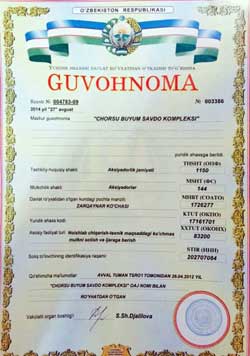 O'ZBEKISTON RESPUBLIKASI
GUVOHNOMA
Reestr № 004783-09
№ 003386
2014 yil "27" avgust
Mazkur guvohnoma
"CHORSU BUYUM SAVDO KOMPLEKSI"
yuridik shaxsga berildi
THSHT (ОПФ)
Tashkiliy-huquqiy shakli Aksiyadorlik jamiyati 1150
MSHT (ФС)
Mulkchilik shakli Aksiyadorlar 144
MHBT (СОАТО)
Davlat ro'yxatidan o'tgan kundagi pochta manzili: 1726277
ZARQAYNAR KO'CHASI
KTUT (ОКПО)
Yuridik shaxs kodi 17161701
XXTUT (ОКОНХ)
Asosiy faoliyat turi Noishlab chiqarish-texnik maqsaddagi ko'chmas 83200
mulkni sotish va ijaraga berish
STIR (ИНН)
Soliq to'lovchining identifikatsiya raqami 202707084
Qo'shimcha ma'lumotlar AVVAL TUMAN TERO1 TOMONIDAN 26.04.2012 YIL
"CHORSU BUYUM SAVDO KOMPLEKSI" OAJ NOMI BILAN
RO'YHATDAN O'TGAN
Vakolatli organ boshlig'i S.Sh.Djalilova